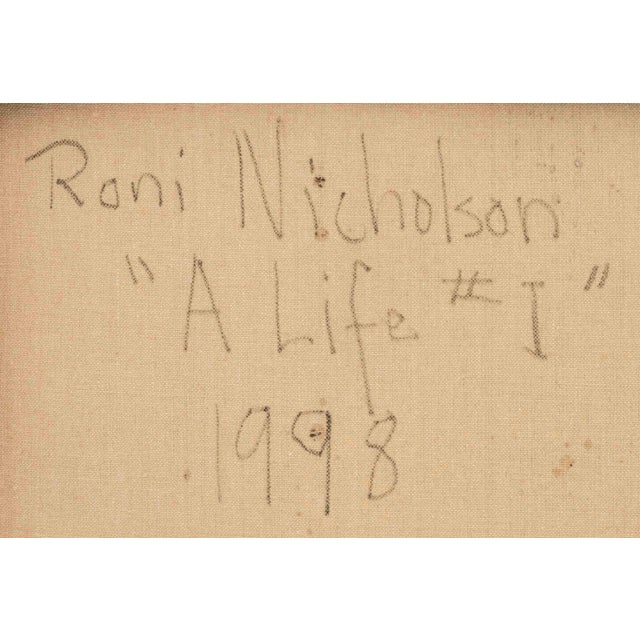 Roni Nicholson
"A Life #I"
1998